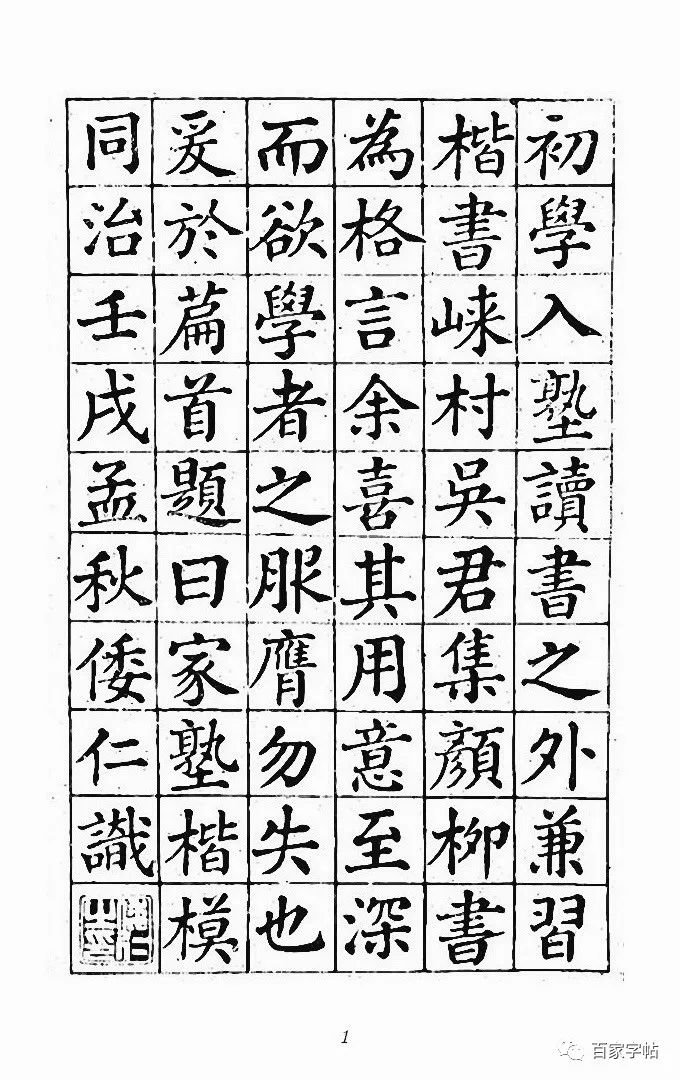 初學入塾讀書之外兼習
楷書崍村吳君集顏柳書
為格言余喜其用意至深
而欲學者之服膺勿失也
爰於篇首題曰家塾楷模
同治壬戌孟秋倭仁識
1
百家字帖